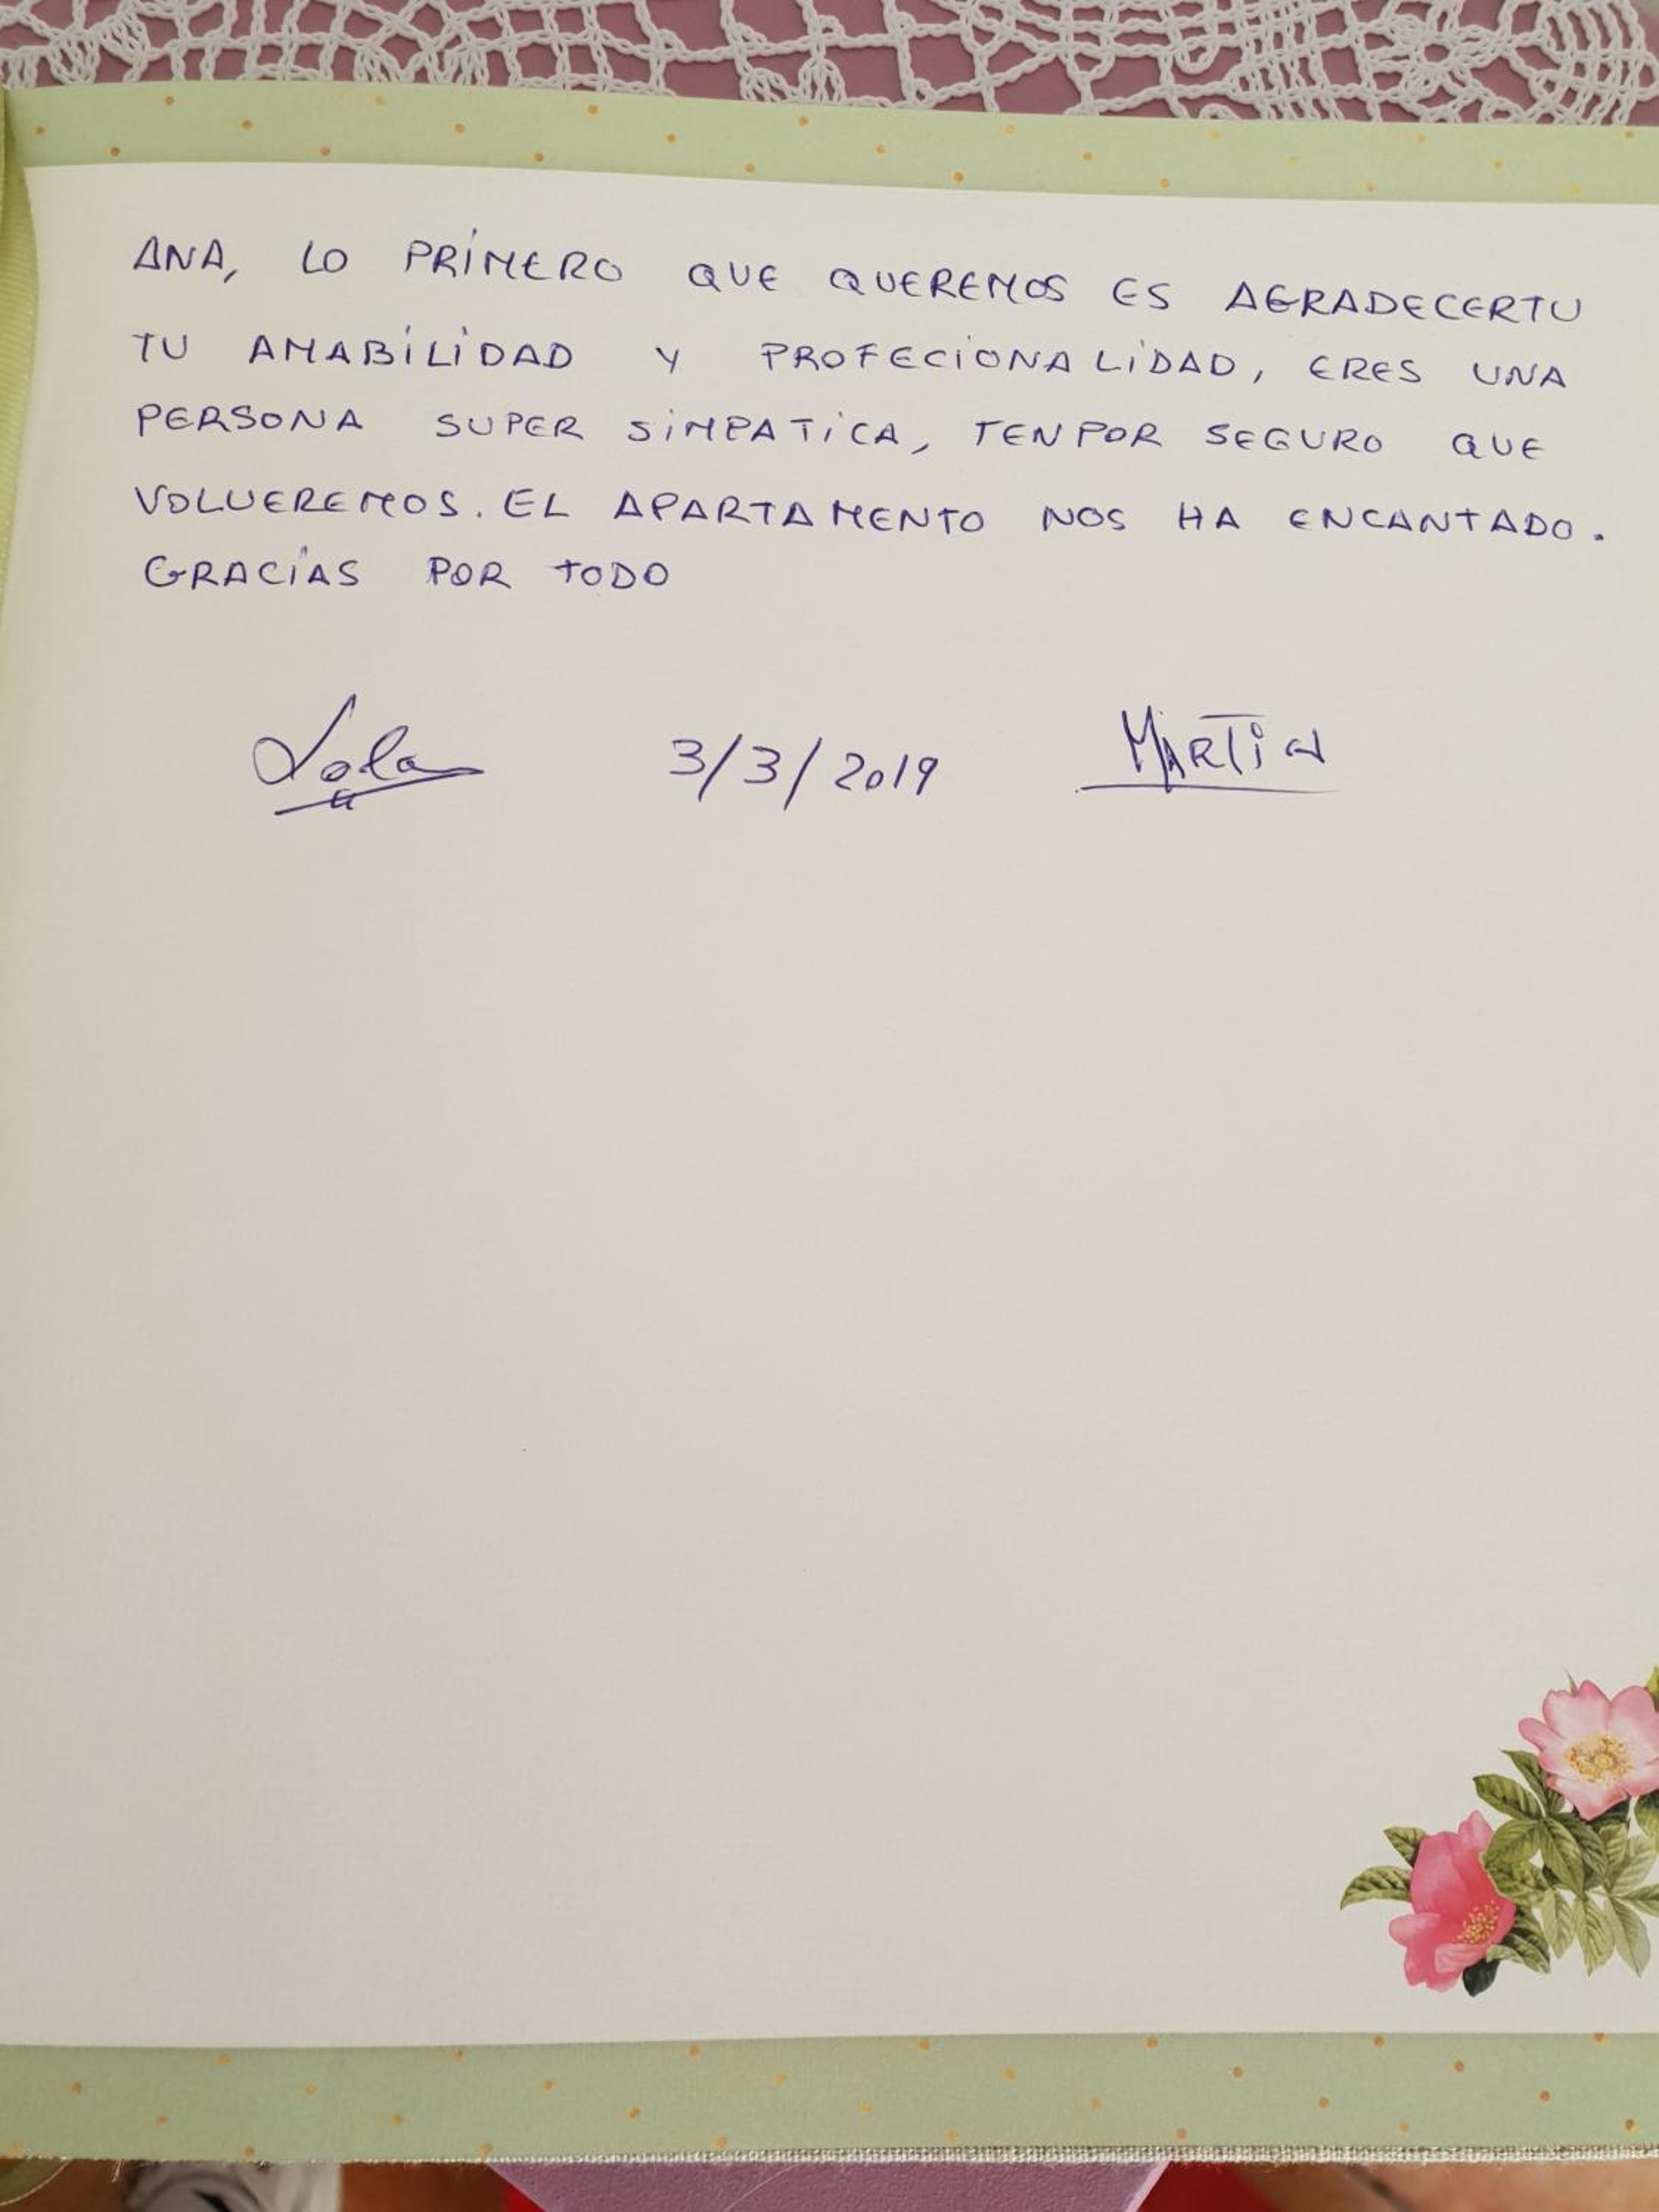 ANA, LO PRIMERO QUE QUEREMOS ES AGRADECERTU
TU AMABILIDAD Y PROFECIONALIDAD, ERES UNA
PERSONA SUPER SIMPATICA, TEN POR SEGURO QUE
VOLVEREMOS. EL APARTAMENTO NOS HA ENCANTADO.
GRACIAS POR TODO
Lola 3/3/2019 MARTIN